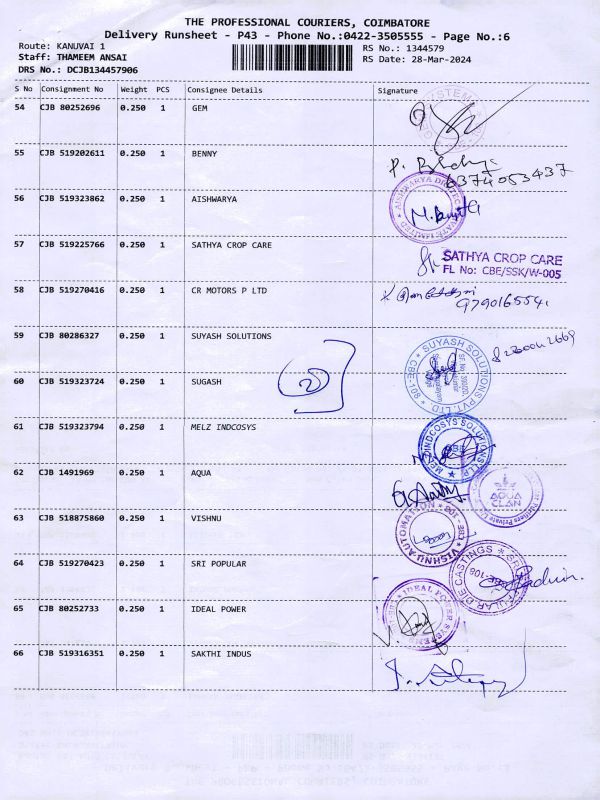 THE PROFESSIONAL COURIERS, COIMBATORE
Delivery Runsheet - P43 - Phone No.:0422-3505555 - Page No.:6
Route: KANUVAI 1 RS No.: 1344579
Staff: THAMEEM ANSAI RS Date: 28-Mar-2024
DRS No.: DCJB134457906
S No Consignment No Weight PCS Consignee Details Signature
54 CJB 80252696 0.250 1 GEM
55 CJB 519202611 0.250 1 BENNY
6374053437
56 CJB 519323862 0.250 1 AISHWARYA
57 CJB 519225766 0.250 1 SATHYA CROP CARE
SATHYA CROP CARE
FL No: CBE/SSK/W-005
58 CJB 519270416 0.250 1 CR MOTORS P LTD
59 CJB 80286327 0.250 1 SUYASH SOLUTIONS
SUYASH SOLUTIONS PVT. LTD. CBE - 801
60 CJB 519323724 0.250 1 SUGASH
2
61 CJB 519323794 0.250 1 MELZ INDCOSYS
MELZ INDCOSYS SOLUTIONS LLP
62 CJB 1491969 0.250 1 AQUA
AQUA
CLAN
63 CJB 518875860 0.250 1 VISHNU
VISHNU AUTOMATION
64 CJB 519270423 0.250 1 SRI POPULAR
65 CJB 80252733 0.250 1 IDEAL POWER
IDEAL POWER SYSTEMS
66 CJB 519316351 0.250 1 SAKTHI INDUS